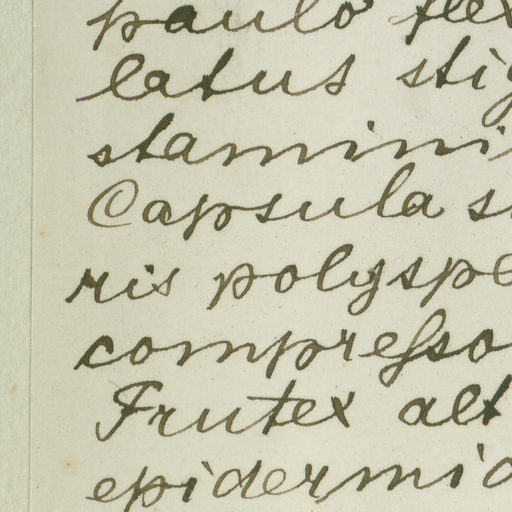 paulo flex
latus stig
stamini
Capsula s
ris polyspe
compresso
Frutex alt
epidermid